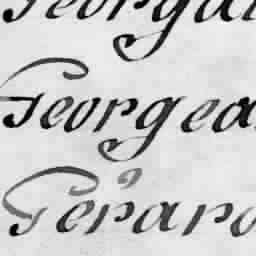 Georga
Georgea
Gerard